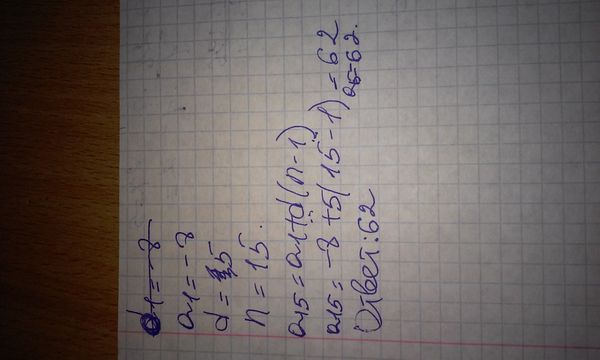 a1=-8
a1=-8
d=5
n=15.
a15=a1+d(n-1)
a15=-8+5(15-1)=62
a15=62.
Ответ:62